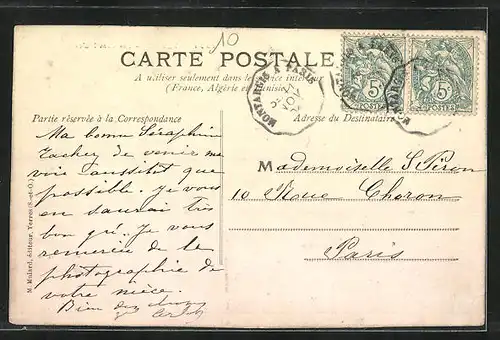 10
CARTE POSTALE
A utiliser seulement dans le service intérieur
(France, Algérie et Tunisie)
MONTARGIS A PARIS
5
POSTES
5
POSTES
Partie réservée à la Correspondance
Adresse du Destinataire
Ma bonne Séraphine
Tachez de venir me
voir aussitôt que
possible. Je vous
en saurai très
bon gré. Je vous
remercie de la
photographie de
votre nièce.
Bien des
Mademoiselle S
10 Rue Choron
Paris
M. Mulard, éditeur, Yerres (S.-et-O.)